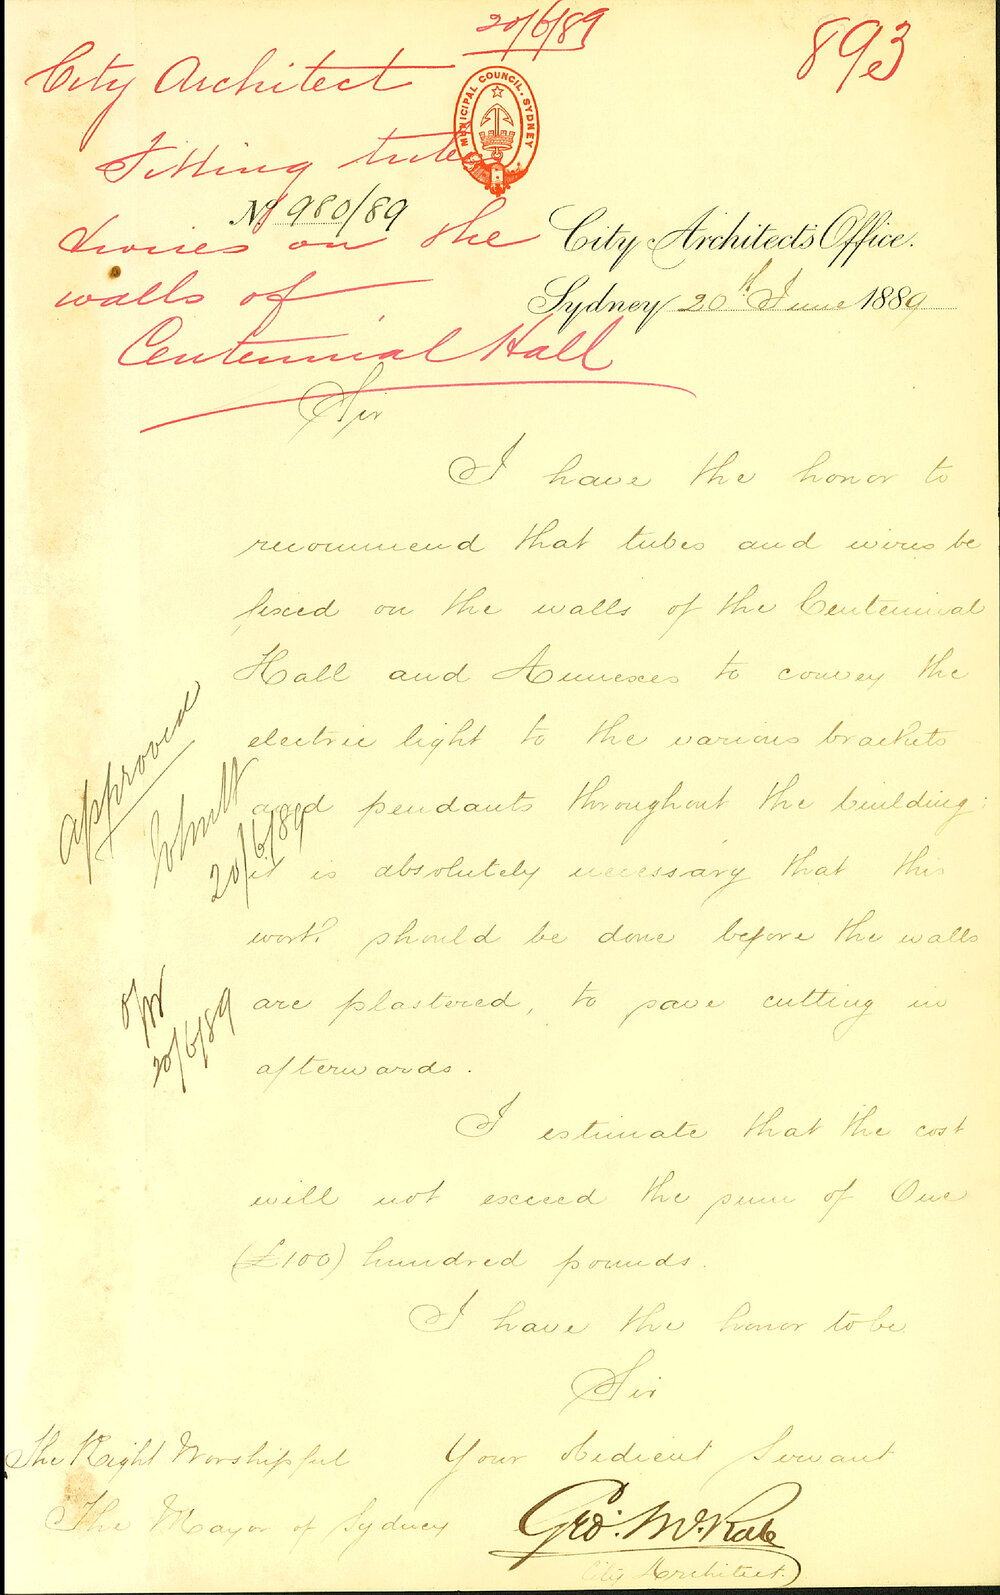 20/6/89
893
City Architect
Fitting tubes
& wires on the
walls of
Centennial Hall
MUNICIPAL COUNCIL. SYDNEY
No. 980/89
City Architects Office.
Sydney 20th June 1889
Sir
I have the honor to
recommend that tubes and wires be
fixed on the walls of the Centennial
Hall and Annexes to convey the
electric light to the various brackets
and pendants throughout the building;
it is absolutely necessary that this
work should be done before the walls
are plastered, to save cutting in
afterwards.
I estimate that the cost
will not exceed the sum of One
(£100) hundred pounds.
I have the honor to be
Sir
Your obedient Servant
Geo. McRae
City Architect.
The Right Worshipful
The Mayor of Sydney
approved
20/6/89
20/6/89